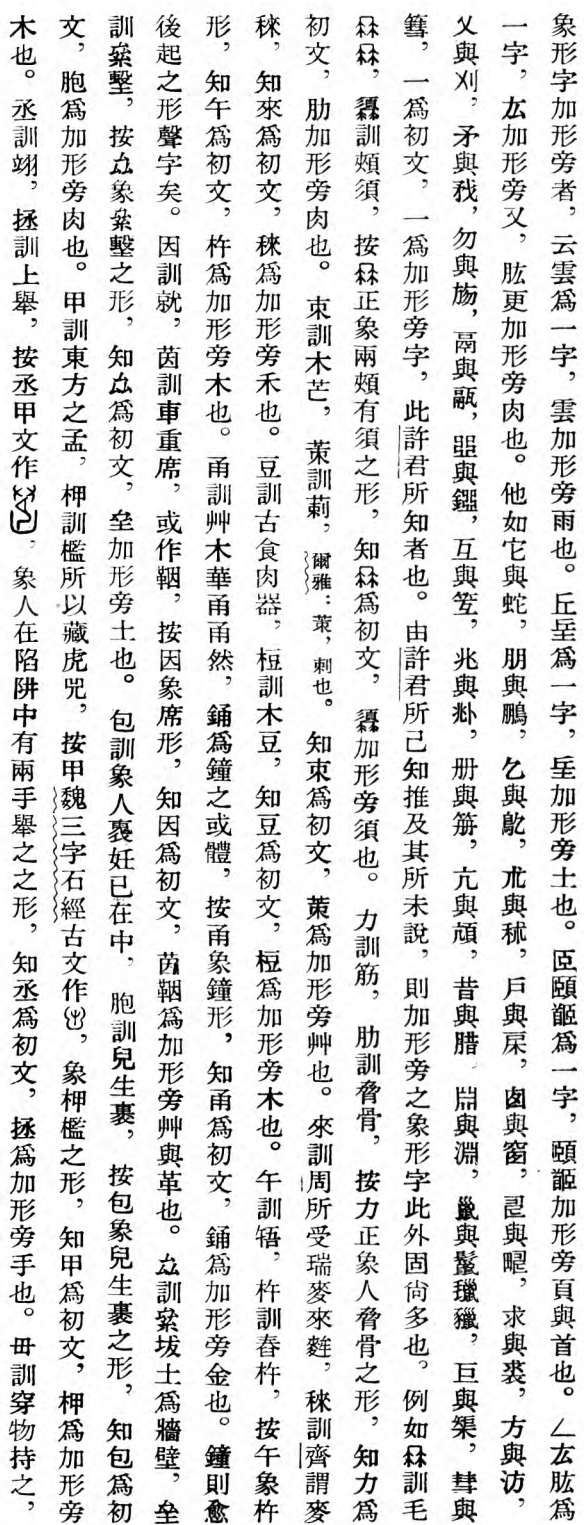 象形字加形旁者，云雲爲一字，雲加形旁雨也。丘坵爲一字，坵加形旁土也。𦣞頤𩠡爲一字，頤𩠡加形旁頁與首也。厶厷肱爲
一字，厷加形旁又，肱更加形旁肉也。他如它與蛇，朋與鵬，乞與鳦，朮與秫，戶與㦿，囱與窗，求與裘，方與汸，
乂與刈，矛與𢦧，勿與㫍，鬲與䰛，互與笠，兆與𠧞，册與笧，亢與頏，昔與腊，𣶒與淵，巤與鬣獵，巨與榘，彗與
篲，一爲初文，一爲加形旁字，此許君所知者也。由許君所已知推及其所未說，則加形旁之象形字此外固尙多也。例如冄訓毛
冄冄，訓頰須，按冄正象兩頰有須之形，知冄爲初文，加形旁須也。力訓筋，肋訓脅骨，按力正象人脅骨之形，知力爲
初文，肋加形旁肉也。朿訓木芒，茦訓莿，爾雅：茦，刺也。知朿爲初文，茦爲加形旁艸也。來訓周所受瑞麥來麰，秾訓齊謂麥
秾，知來爲初文，秾爲加形旁禾也。豆訓古食肉器，梪訓木豆，知豆爲初文，梪爲加形旁木也。午訓啎，杵訓舂杵，按午象杵
形，知午爲初文，杵爲加形旁木也。甬訓艸木華甬甬然，銿爲鐘之或體，按甬象鐘形，知甬爲初文，銿爲加形旁金也。鐘則愈
後起之形聲字矣。因訓就，茵訓車重席，或作鞇，按因象席形，知因爲初文，茵鞇爲加形旁艸與革也。厽訓絫坺土爲牆壁，垒
訓絫墼，按厽象絫墼之形，知厽爲初文，垒加形旁土也。包訓象人褢妊已在中，胞訓兒生裹，按包象兒生裹之形，知包爲初
文，胞爲加形旁肉也。甲訓東方之孟，柙訓檻所以藏虎兕，按甲魏三字石經古文作，象柙檻之形，知甲爲初文，柙爲加形旁
木也。丞訓翊，拯訓上舉，按丞甲文作，象人在陷阱中有兩手舉之之形，知丞爲初文，拯爲加形旁手也。毌訓穿物持之，